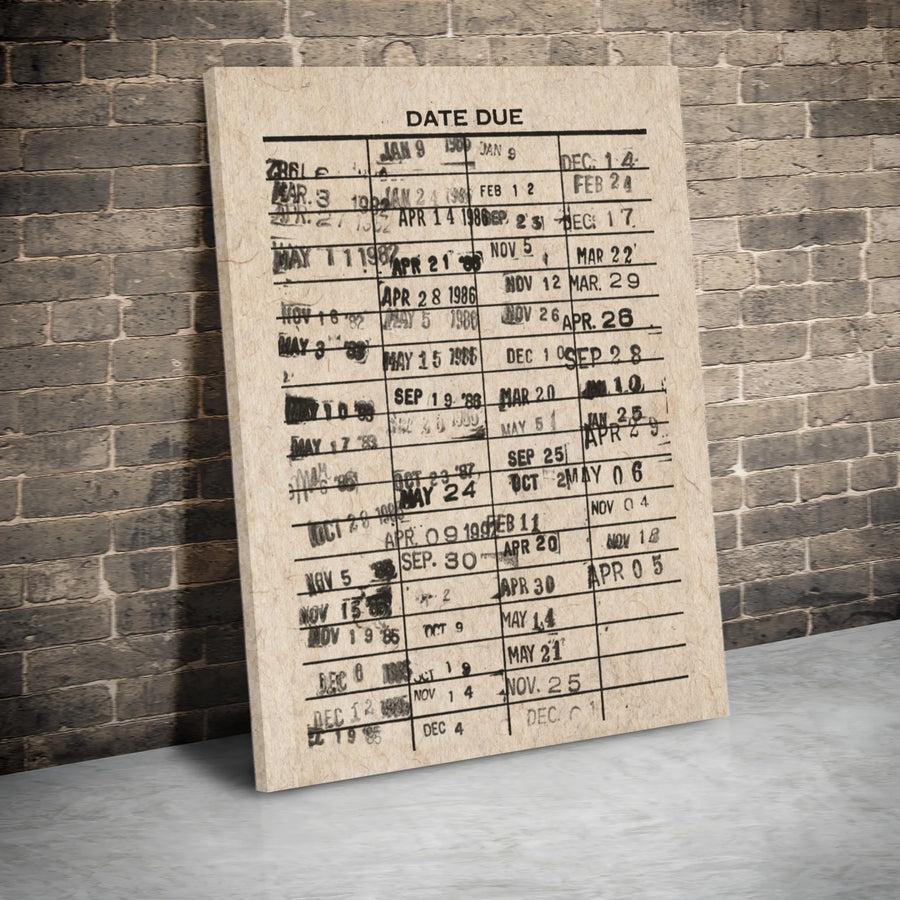 DATE DUE
MAR. 3 1982
MAY 11 1982
NOV 16 '82
MAY 3
MAY 10 '83
MAY 17 '83
OCT 28
NOV 5
NOV 15
NOV 19 '85
DEC 6
DEC 12
19 '85
JAN 9
JAN 24
APR 14 1986
APR 21 '86
APR 28 1986
MAY 5 1986
MAY 15 1986
SEP 19 '86
OCT 23 '87
MAY 24
APR. 09 1991
SEP. 30
2
OCT 9
OCT 19
NOV 14
DEC 4
JAN 9
FEB 12
SEP. 23
NOV 5
NOV 12
NOV 26
DEC 10
MAR 20
MAY 5
SEP 25
OCT 2
FEB 11
APR 20
APR 30
MAY 14
MAY 21
NOV. 25
DEC.
DEC. 14
FEB 24
DEC. 17
MAR 22
MAR. 29
APR. 26
SEP 28
JAN 10
JAN 25
APR 29
MAY 06
NOV 04
NOV 18
APR 05